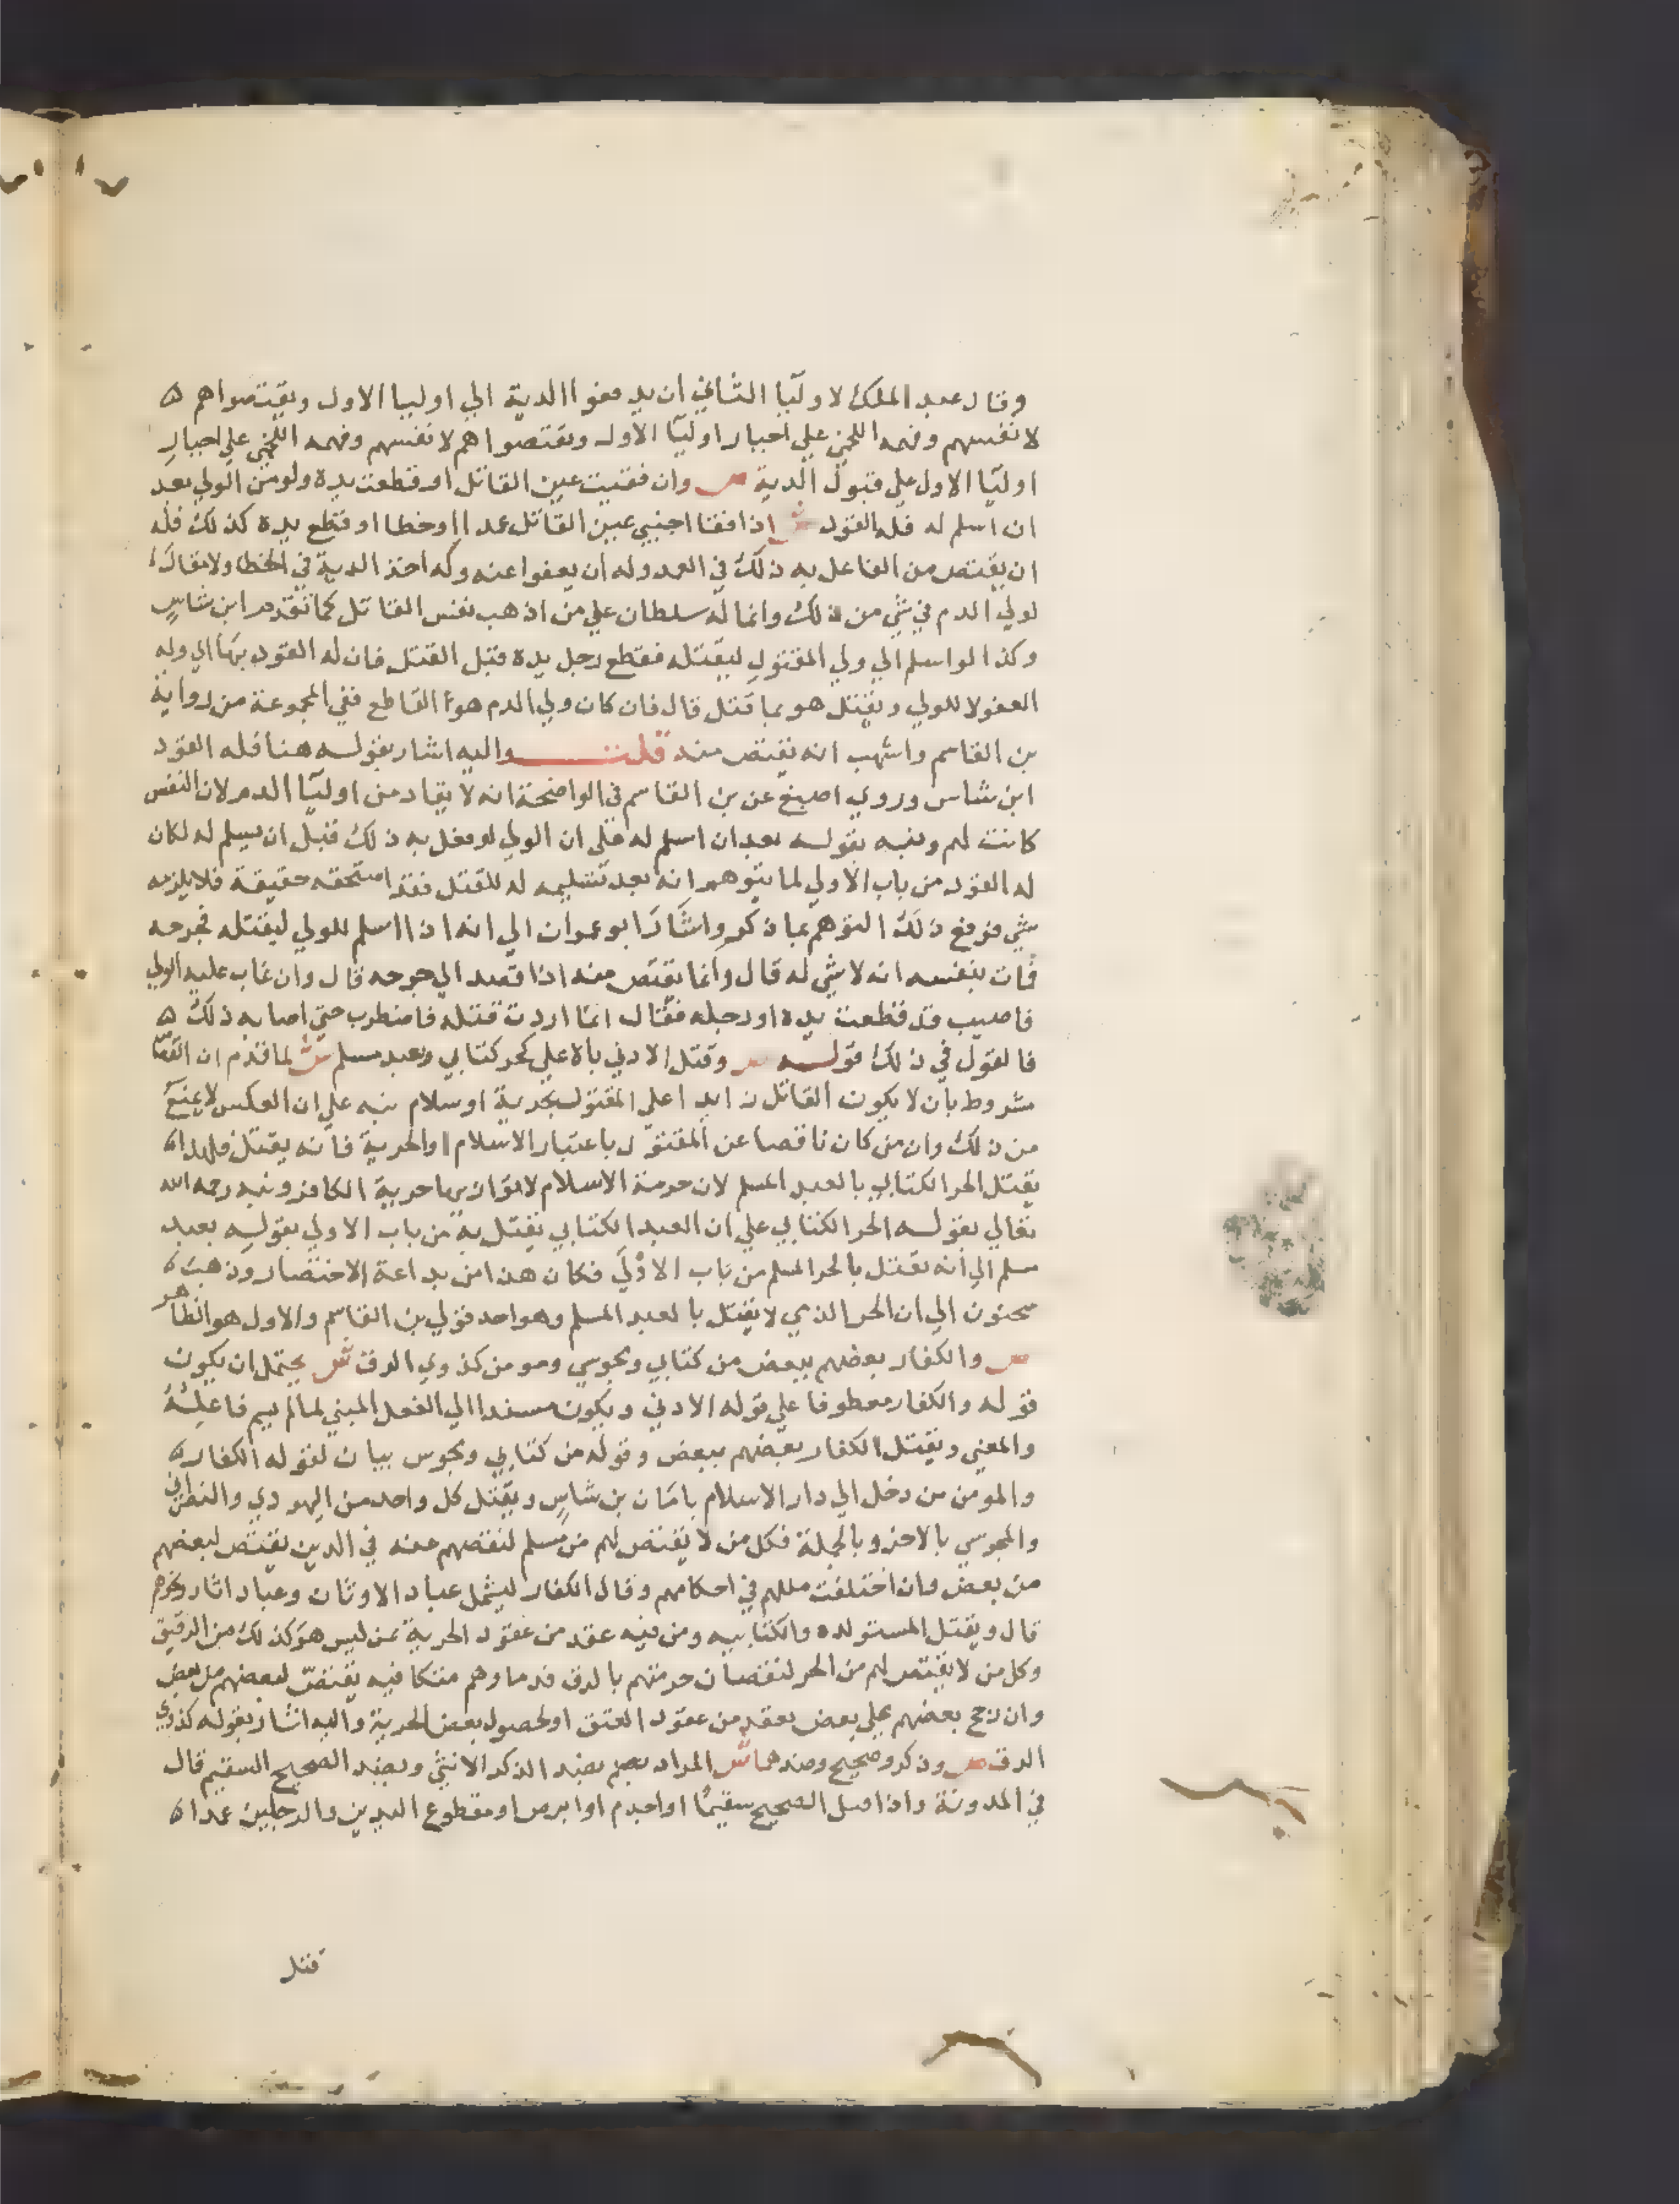 وقال عبد الملك لاوليا الثاني ان يدفعوا الدية الي اوليا الاول ويقتصواهم ه
لانفسهم وفهمه اللخمي علي اجبار اوليا الاول ويقتصواهم لانفسهم وفهمه اللخمي علي اجبار
اوليا الاول علي قبول الدية ص وان فقيت عين القاتل او قطعت يده ولو من الولي بعد
ان اسلم له فله القود ش اذا فقا اجنبي عين القاتل عمدا او خطا او قطع يده كذلك فله
ان يقتص من الفاعل به ذلك في العمد وله ان يعفوا عنه وله اخذ الدية في الخطا ولا مقال
لولي الدم في شي من ذلك وانما له سلطان علي من اذهب نفس القاتل كما تقدم ابن شاس
وكذا لو اسلم الي ولي المقتول ليقتله فقطع رجل يده قبل القتل فان له القود بها اليه وله
العفو لا للولي ويقتل هو بما قتل قال فان كان ولي الدم هو القاطع ففي المجموعة من رواية
بن القاسم واشهب انه يقتص منه قلت واليه اشار بقوله هنا فله القود
ابن شاس وروي اصبغ عن بن القاسم في الواضحة انه لا يقاد من اوليا الدم لان النفس
كانت لهم ونبه بقوله بعد ان اسلم له علي ان الولي لو فعل به ذلك قبل ان يسلم له لكان
له القود من باب الاولي لما يتوهم انه بعد تسليمه له للقتل فقد استحقه حقيقة فلا يلزمه
شي فرفع ذلك التوهم بما ذكر واشار ابو عمران الي انه اذا اسلم للولي ليقتله فجرحه
فمات بنفسه انه لا شي له قال وانما يقتص منه اذا قصد الي جرحه قال وان غاب عليه الولي
فاصيب قد قطعت يده او رجله فقال انما اردت قتله فاضطرب حتي اصابه ذلك ه
فالقول في ذلك قوله ص وقتل الادني بالاعلي كحر كتابي وبعبد مسلم ش لما قدم ان القصا
مشروط بان لا يكون القاتل زايدا علي المقتول بحرية او سلام نبه علي ان العكس لا يمنع
من ذلك وان من كان ناقصا عن المقتول باعتبار الاسلام او الحرية فانه يقتل فلهذا ه
يقتل الحر الكتابي بالعبد المسلم لان حرمة الاسلام لا توازيها حرية الكافر ونبه رحمه الله
تعالي بقوله الحر الكتابي علي ان العبد الكتابي يقتل به من باب الاولي بقوله بعبد
مسلم الي انه يقتل بالحر المسلم من باب الاولي فكان هذا من بداعة الاختصار وذهب ه
سحنون الي ان الحر الذي لا يقتل بالعبد المسلم وهو احد قولي بن القاسم والاول هو الظاهر
ص والكفار بعضهم ببعض من كتابي ومجوسي ومومن كذوي الرق ش يحتمل ان يكون
قوله والكفار معطوفا علي قوله الادني ويكون مسندا الي الفعل المبني لما لم يسم فاعله
والمعني ويقتل الكفار بعضهم ببعض وقوله من كتابي ومجوس بيان لقوله الكفار ه
والمومن من دخل الي دار الاسلام بامان بن شاس ويقتل كل واحد من اليهودي والنصراني
والمجوسي بالاخر وبالجملة فكل من لا يقتص لهم من مسلم لنقصهم عنه في الدين يقتص لبعضهم
من بعض وان اختلفت مللهم في احكامهم وقال الكفار ليشمل عباد الاوثان وعباد النار ونحوهم
قال ويقتل المستولده والكتابيه ومن فيه عقد من عقود الحرية بمن ليس هو كذلك من الرقيق
وكل من لا يقتص لهم من الحر لنقصان حرمتهم بالرق فدماوهم متكافيه يقتص لبعضهم من بعض
وان رجح بعضهم علي بعض بعقد من عقود العتق او لحصول بعض الحرية واليه اشار بقوله كذوي
الرق ص وذكر وصحيح وضدهما ش المراد بضد الذكر الانثي وبضد الصحيح السقيم قال
في المدونة واذا قتل الصحيح سقيما او اجذم او ابرص او مقطوع اليدين والرجلين عمدا ه
قتل